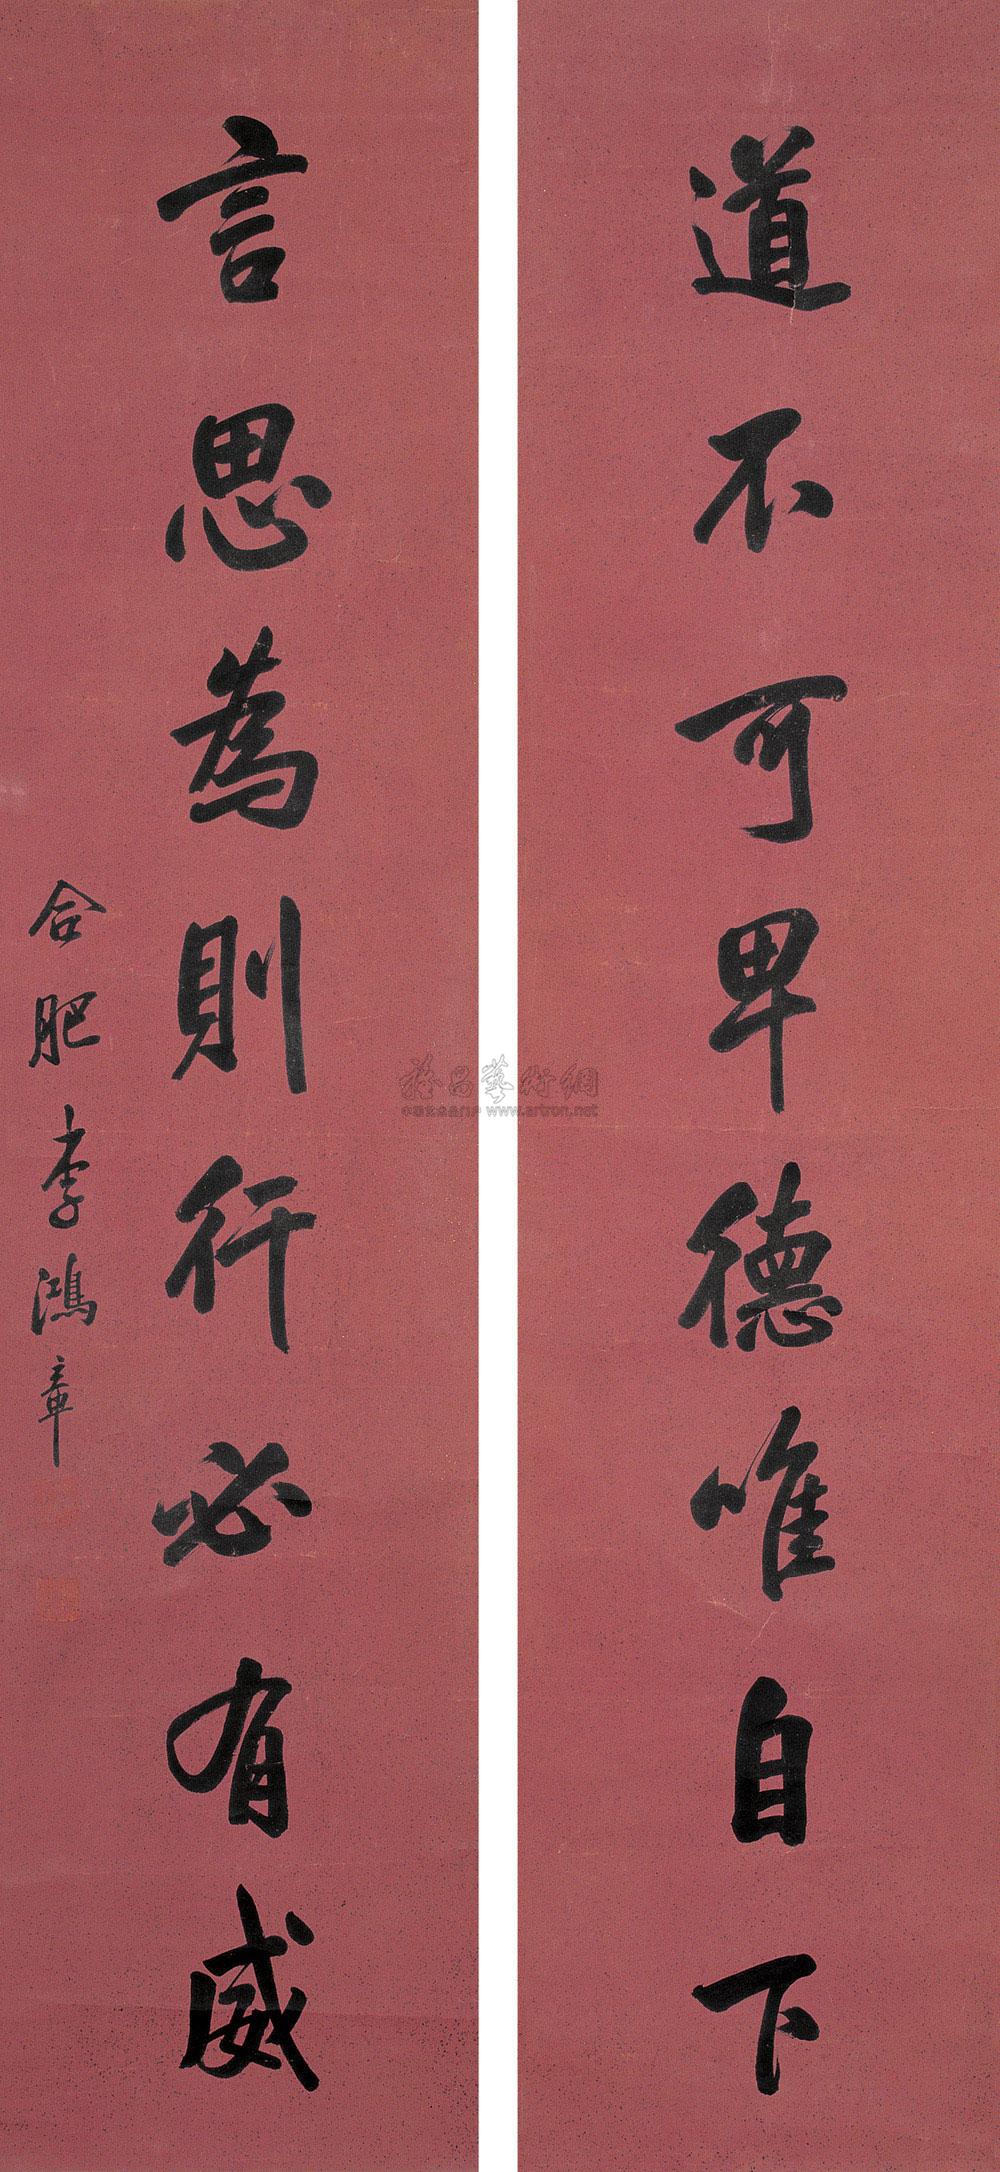 道不可卑德唯自下
言思為則行必有威
合肥李鴻章
雅昌藝術網
www.artron.net